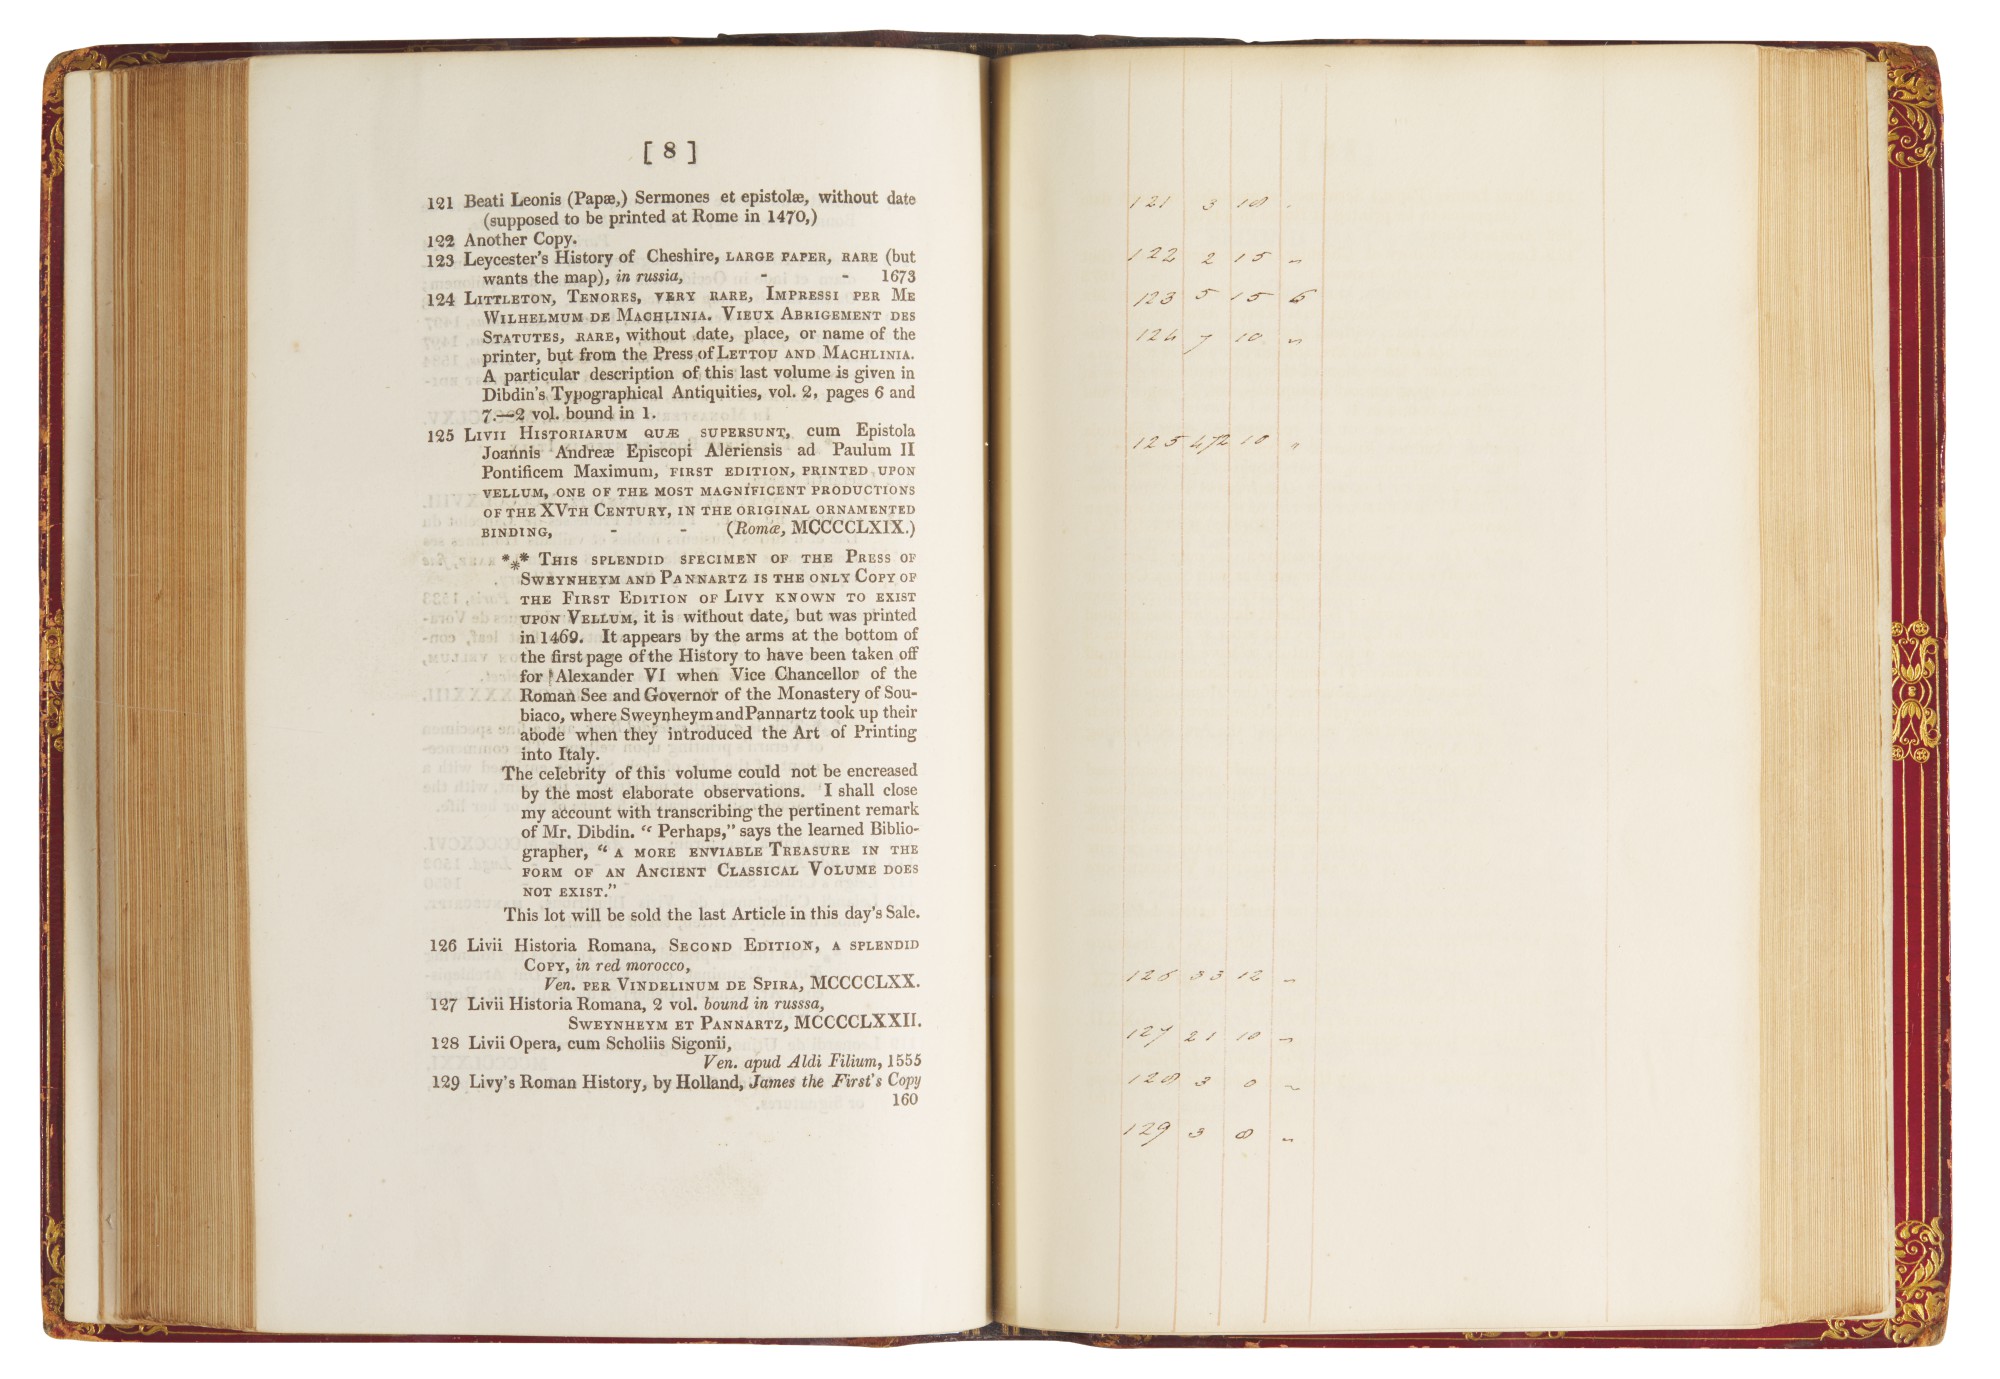 [ 8 ]
121 Beati Leonis (Papæ,) Sermones et epistolæ, without date
(supposed to be printed at Rome in 1470,)
122 Another Copy.
123 Leycester's History of Cheshire, LARGE PAPER, RARE (but
wants the map), in russia, - - 1673
124 LITTLETON, TENORES, VERY RARE, IMPRESSI PER ME
WILHELMUM DE MACHLINIA. VIEUX ABRIGEMENT DES
STATUTES, RARE, without date, place, or name of the
printer, but from the Press of LETTOU AND MACHLINIA.
A particular description of this last volume is given in
Dibdin's Typographical Antiquities, vol. 2, pages 6 and
7.—2 vol. bound in 1.
125 LIVII HISTORIARUM QUÆ SUPERSUNT, cum Epistola
Joannis Andreæ Episcopi Aleriensis ad Paulum II
Pontificem Maximum, FIRST EDITION, PRINTED UPON
VELLUM, ONE OF THE MOST MAGNIFICENT PRODUCTIONS
OF THE XVTH CENTURY, IN THE ORIGINAL ORNAMENTED
BINDING, - - (Romæ, MCCCCLXIX.)
*** THIS SPLENDID SPECIMEN OF THE PRESS OF
SWEYNHEYM AND PANNARTZ IS THE ONLY COPY OF
THE FIRST EDITION OF LIVY KNOWN TO EXIST
UPON VELLUM, it is without date, but was printed
in 1469. It appears by the arms at the bottom of
the first page of the History to have been taken off
for Alexander VI when Vice Chancellor of the
Roman See and Governor of the Monastery of Sou-
biaco, where Sweynheym and Pannartz took up their
abode when they introduced the Art of Printing
into Italy.
The celebrity of this volume could not be encreased
by the most elaborate observations. I shall close
my account with transcribing the pertinent remark
of Mr. Dibdin. “ Perhaps,” says the learned Biblio-
grapher, “ A MORE ENVIABLE TREASURE IN THE
FORM OF AN ANCIENT CLASSICAL VOLUME DOES
NOT EXIST.”
This lot will be sold the last Article in this day's Sale.
126 Livii Historia Romana, SECOND EDITION, A SPLENDID
COPY, in red morocco,
Ven. PER VINDELINUM DE SPIRA, MCCCCLXX.
127 Livii Historia Romana, 2 vol. bound in russsa,
SWEYNHEYM ET PANNARTZ, MCCCCLXXII.
128 Livii Opera, cum Scholiis Sigonii,
Ven. apud Aldi Filium, 1555
129 Livy's Roman History, by Holland, James the First's Copy
160
121 3 10 "
122 2 15 "
123 5 15 6
124 7 10 "
125 472 10 "
126 33 12 "
127 21 10 "
128 3 0 "
129 3 8 "